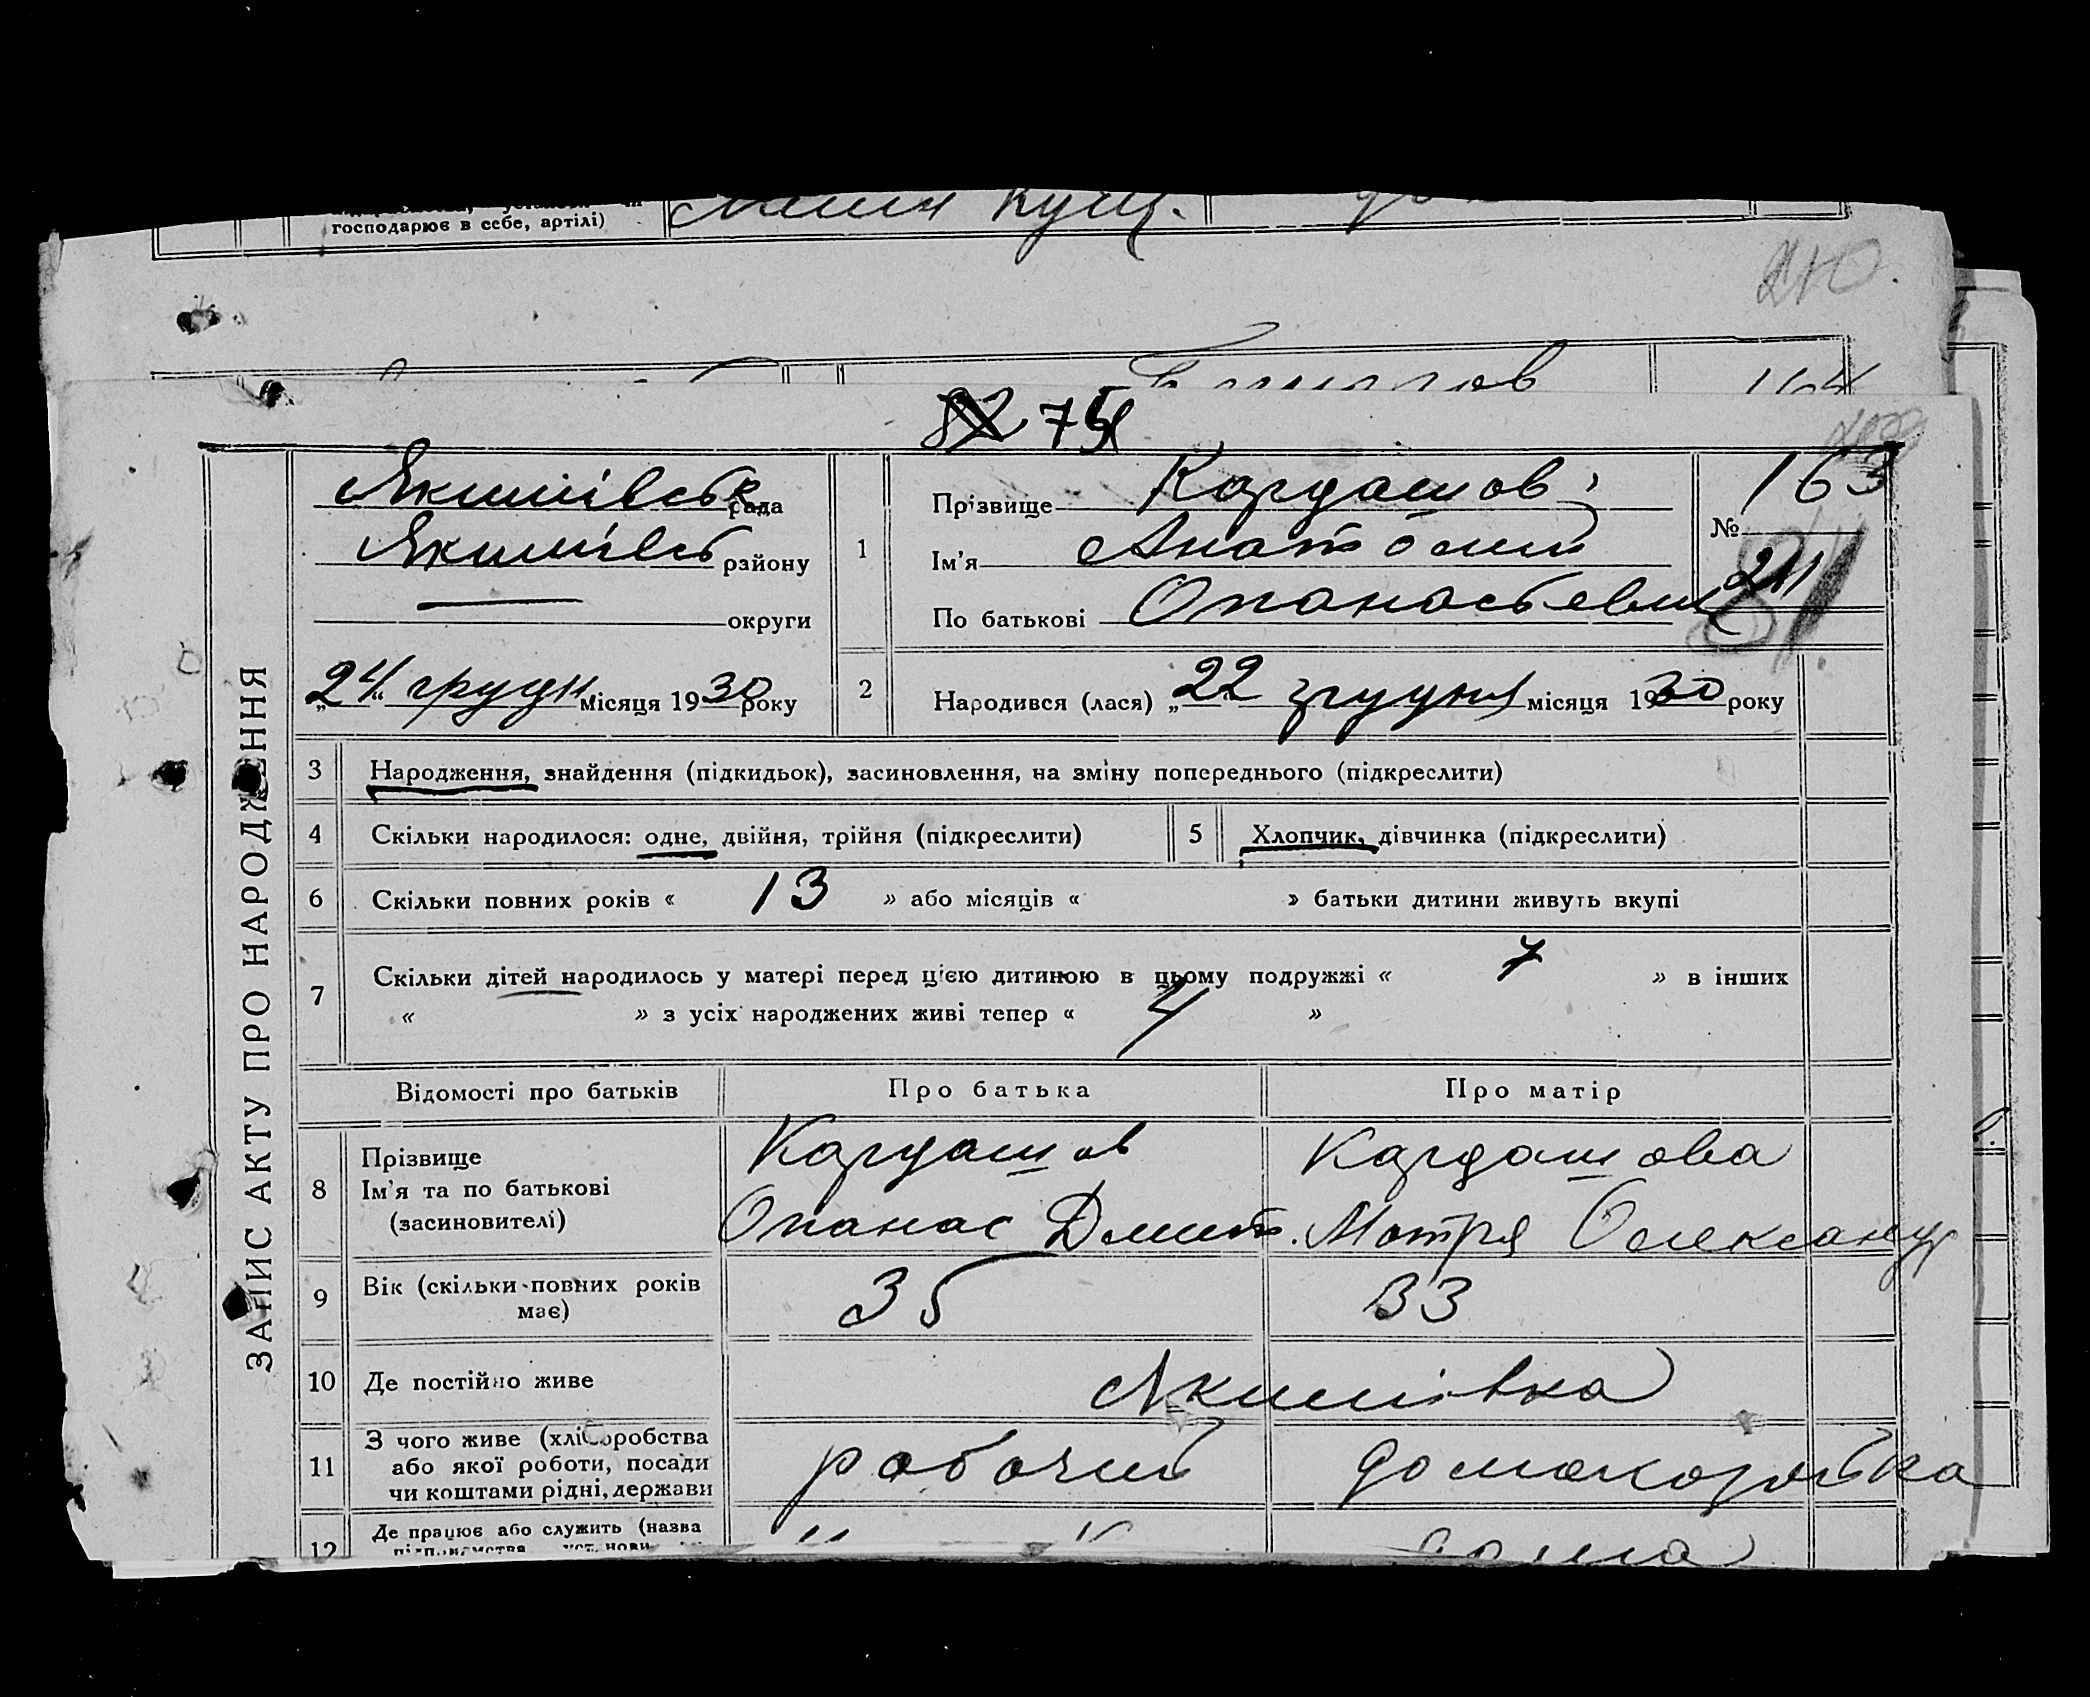 господарює в себе, артілі)
210.
75
Якимівськ рада
Якимівсь району
округи
„24“ грудн місяця 1930 року
1
Прізвище Кардашов
Ім'я Анатолий
По батькові Опанасьевич
№ 163
211
81
2
Народився (лася) „22“ грудня місяця 1930 року
ЗАПИС АКТУ ПРО НАРОДЖЕННЯ
3 Народження, знайдення (підкидьок), засиновлення, на зміну попереднього (підкреслити)
4 Скільки народилося: одне, двійня, трійня (підкреслити) 5 Хлопчик, дівчинка (підкреслити)
6 Скільки повних років « 13 » або місяців « » батьки дитини живуть вкупі
7 Скільки дітей народилось у матері перед цією дитиною в цьому подружжі « 7 » в інших
« » з усіх народжених живі тепер « 4 »
Відомості про батьків Про батька Про матір
8 Прізвище
Ім'я та по батькові
(засиновителі)
Кардашов
Опанас Дмит.
Кардашова
Мотря Олександр
9 Вік (скільки повних років
має)
35 33
10 Де постійно живе Якимівка
11 З чого живе (хліборобства
або якої роботи, посади
чи коштами рідні, держави
робочий домохозяйка
12 Де працює або служить (назва
дома